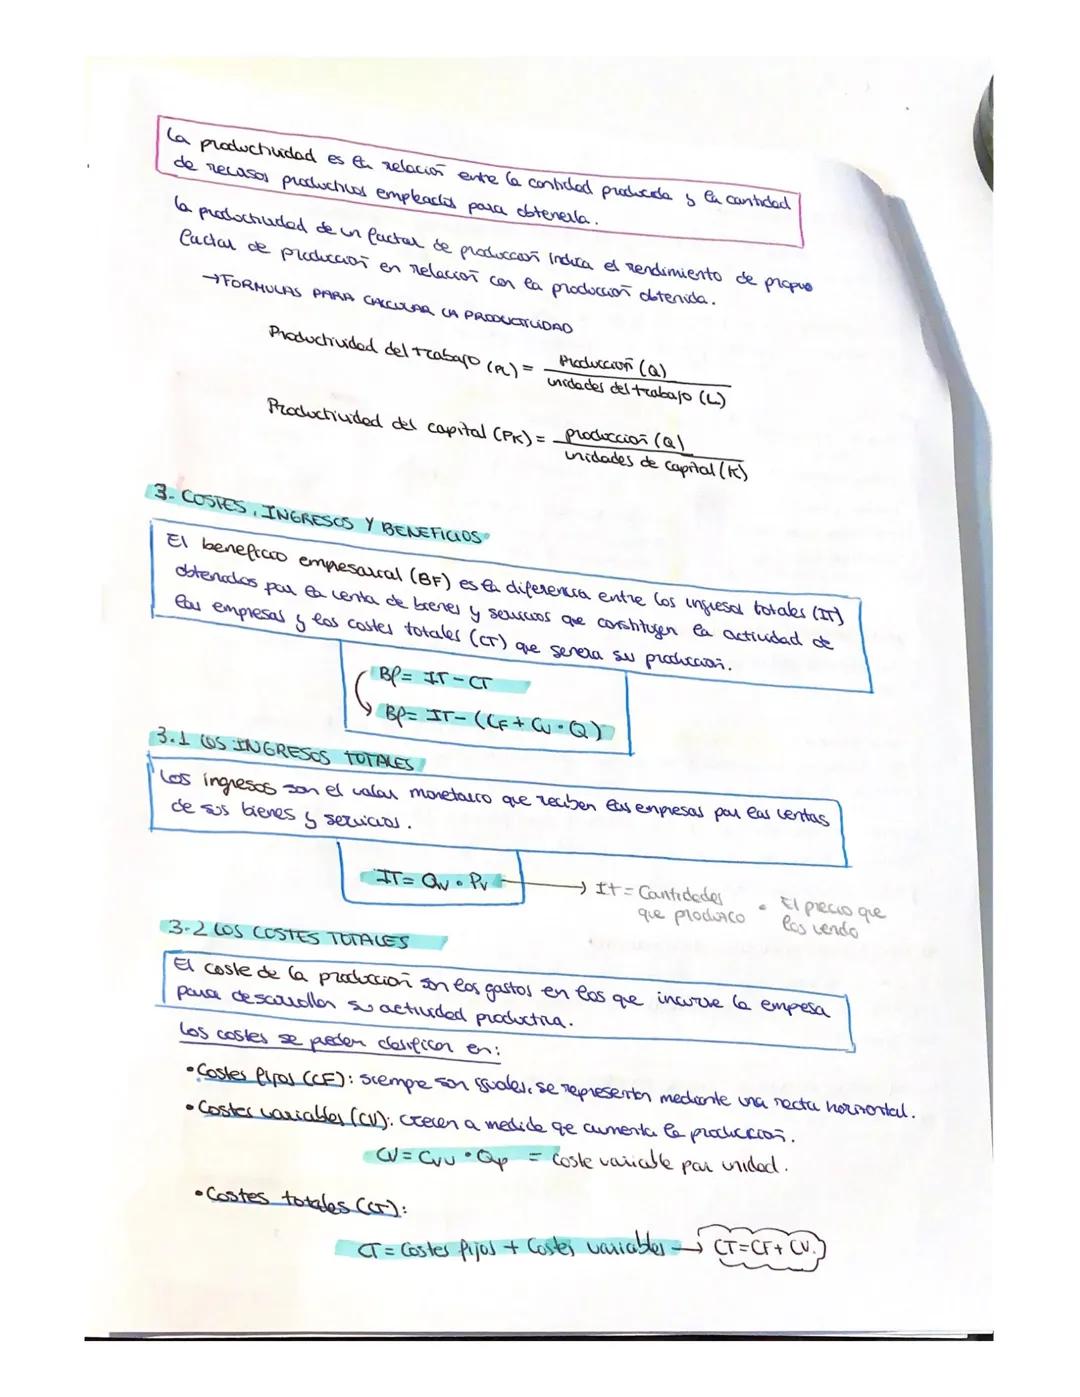 La productividad es la relación entre la cantidad producida y la cantidad
de recursos productivos empleados para obtenerla.
La productividad de un factor de producción indica el rendimiento de propio
factor de producción en relación con la producción obtenida.
→FORMULAS PARA CALCULAR LA PRODUCTIVIDAD
Productividad del trabajo (PL) = Producción (Q)
unidades del trabajo (L)
Productividad del capital (PK) = producción (Q)
unidades de capital (K)
3. COSTES, INGRESOS Y BENEFICIOS
El beneficio empresarial (BF) es la diferencia entre los ingresos totales (IT)
obtenidos por la venta de bienes y servicios que constituyen la actividad de
las empresas y los costes totales (CT) que genera su producción.
Bf= IT-CT
Bf= IT-(CF+Cv·Q)
3.1 LOS INGRESOS TOTALES
Los ingresos son el valor monetario que reciben las empresas por las ventas
de sus bienes y servicios.
IT= Qv · Pv → It = Cantidades · El precio que
que produzco los vendo
3.2 LOS COSTES TOTALES
El coste de la producción son los gastos en los que incurre la empesa
para desarrollar su actividad productiva.
Los costes se pueden clasificar en:
•Costes fijos (CF): siempre son iguales, se representan mediante una recta horizontal.
•Costes variables (CV): crecen a medida que aumenta la producción.
CV= Cvu · Qp = Coste variable por unidad.
•Costes totales (CT):
CT= Costes fijos + Costes variables → CT=CF+CV.